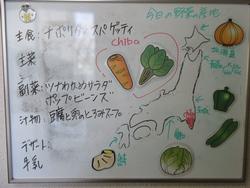 今日の野菜の産地
主食: ナポリタンスパゲッティ
chiba
主菜
副菜: ツナわかめサラダ
ポップビーンズ
汁物: 豆腐と卵のとろみスープ
デザート:
牛乳
北海道